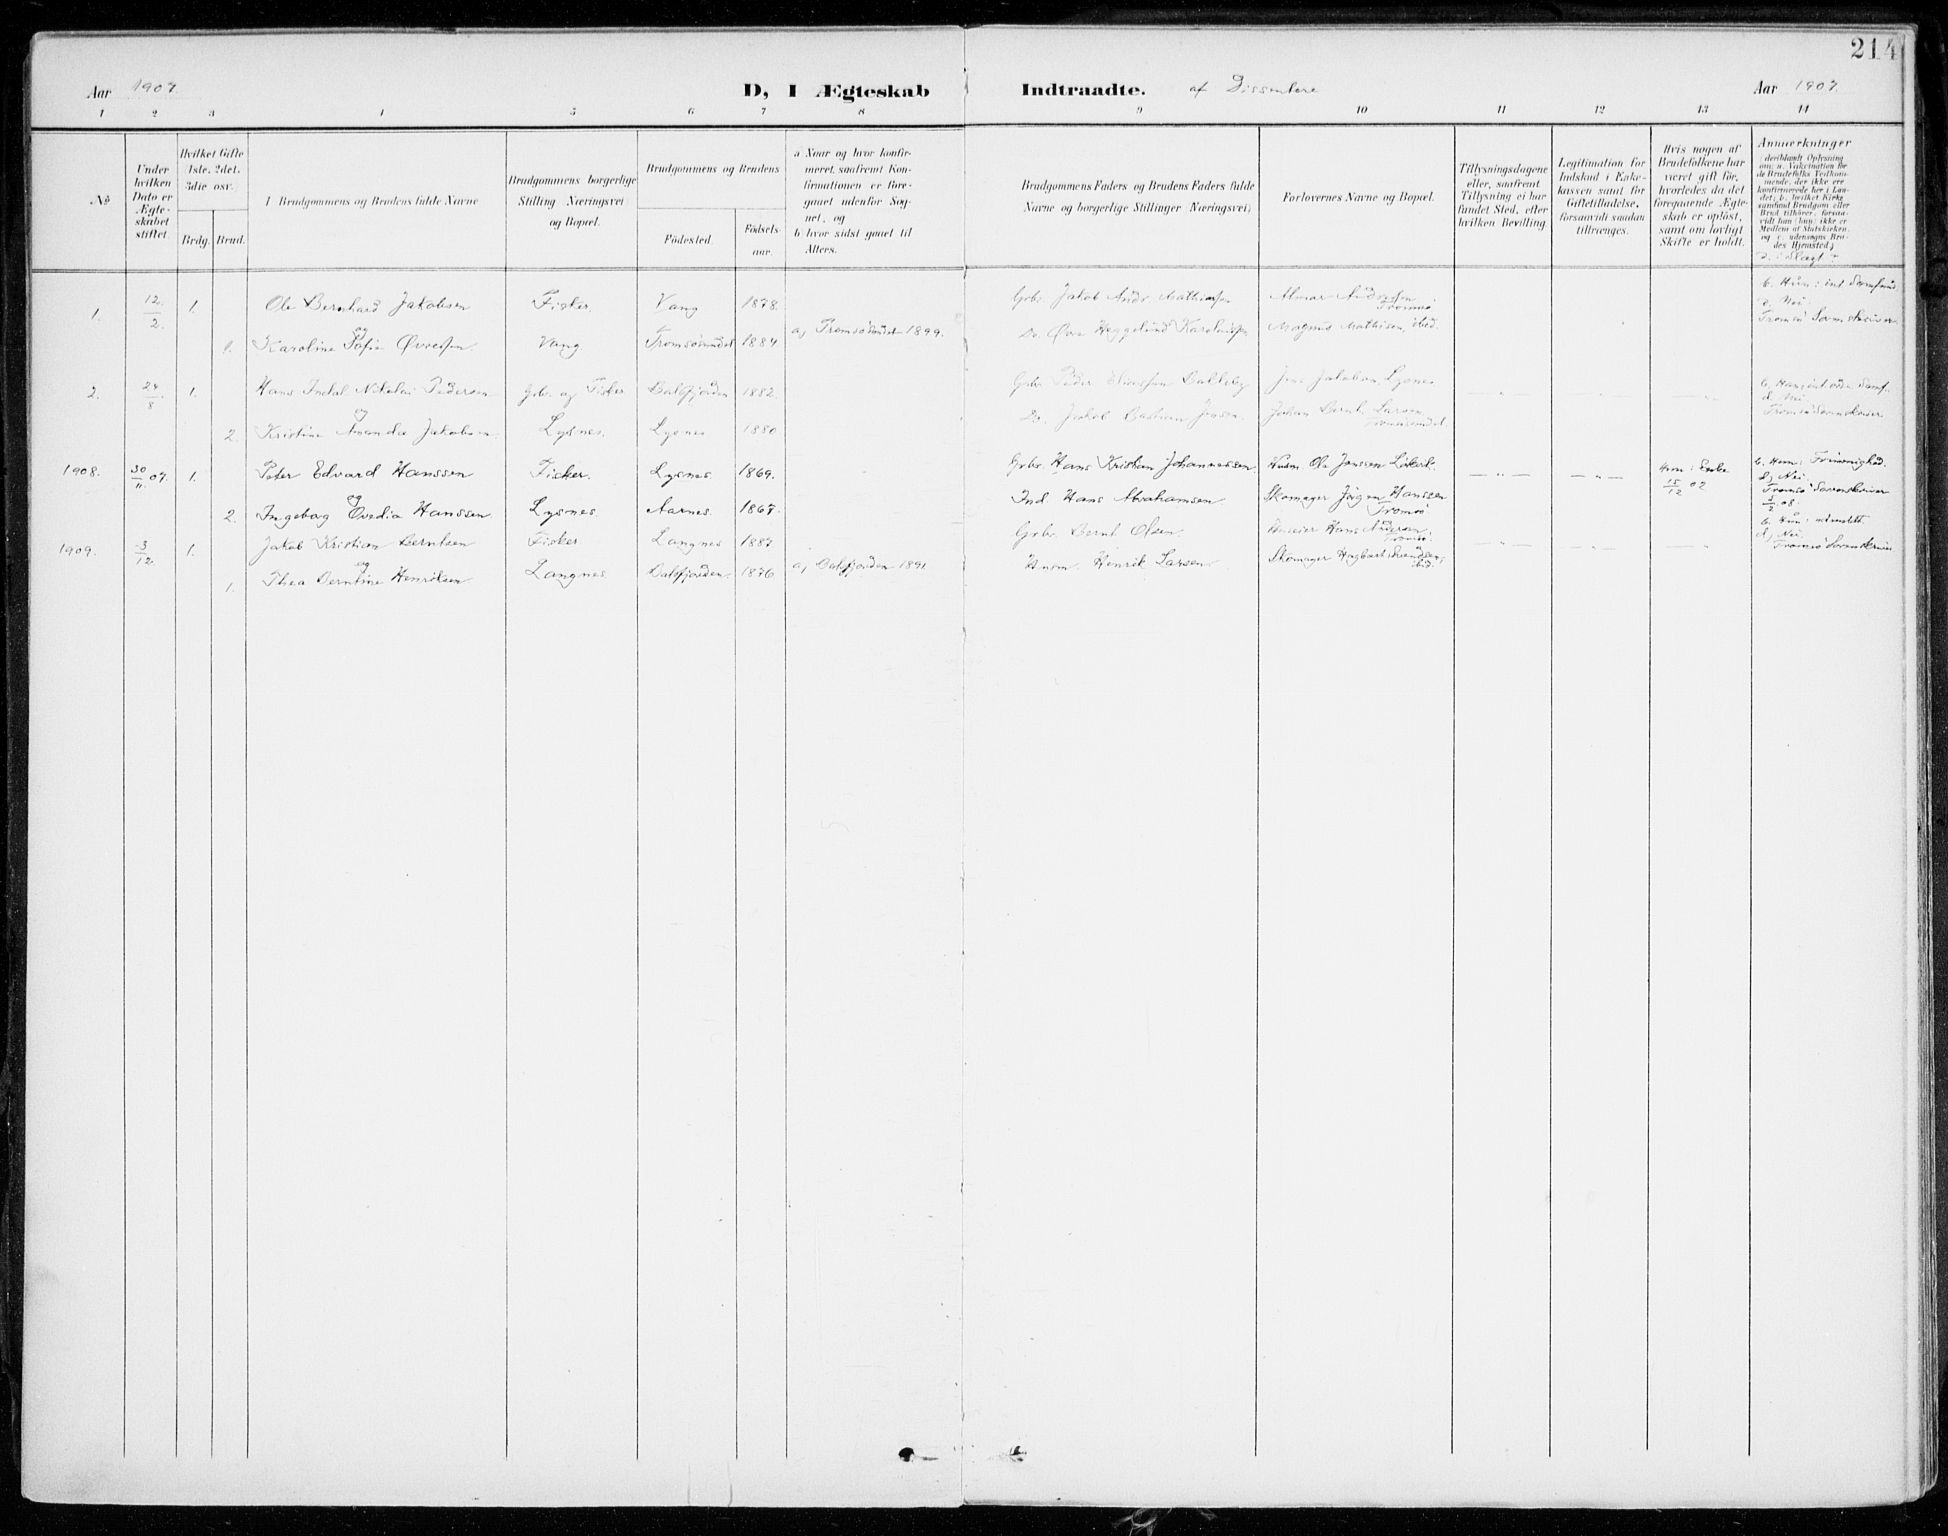 214
Aar 1907
D, I Ægteskab Indtraadte. af Dissentere
Aar 1907.
1 2 3 4 5 6 7 8 9 10 11 12 13 14
No
Under hvilken Dato er Ægte- skabet stiftet.
Hvilket Gifte 1ste, 2det, 3die osv.
Brdg. Brud.
Brudgommens og Brudens fulde Navne
Brudgommens borgerlige Stilling (Næringsvei) og Bopæl.
Brudgommens og Brudens
Födested.
Födsels- aar.
a Naar og hvor konfir- meret, saafremt Kon- firmationen er fore- gaaet udenfor Sog- net, og
b hvor sidst gaaet til Alters.
Brudgommens Faders og Brudens Faders fulde Navne og borgerlige Stillinger (Næringsvei)
Forlovernes Navne og Bopæl.
Tillysningsdagene eller, saafremt Tillysning ei har fundet Sted, efter hvilken Bevilling.
Legitimation for Indskud i Enke- kassen samt for Giftetilladelse, forsaavidt saadan tiltrænges.
Hvis nogen af Brudefolkene har været gift för, hvorledes da det foregaaende Ægte- skab er oplöst, samt om lovligt Skifte er holdt.
Anmærkninger
(deriblandt Oplysning om: a. Vakcination for de Brudefolks Vedkom- mende, der ikke ere konfirmerede her i Lan- det; b. hvilket Kirke- samfund Brudgom eller Brud tilhörer, forsaa- vidt han (hun) ikke er Medlem af Statskirken, og c. udensogns Bru- des Hjemsted)
d. i Slægt?
1. 12/2. 1. Ole Bernhard Jakobsen Fisker. Vang 1878. Grbr. Jakob Andr. Mathiassen Almar Andresen Tromsø b. Hun: int. Samfund
og
d. Nei.
1. Karoline Sofie Øvresen. Vang Tromsøsundet 1884 a) Tromsøsundet 1899. Do. Øvre Heggelund Karolinussen Magnus Mathisen, ibid. Tromsø Sorenskriver
2. 24/8. 1. Hans Indal Nikolai Pedersen Grbr. og Fisker Balsfjorden 1882. Grbr. Peder Jens Jakobsen Lysnes — „ — — „ — — „ — b. Han: int. Samf.
og
d. Nei
2. Kristine Amanda Jakobsen Lysnes. Lysnes 1880 Do. Jakob Bastian Jensen. Johan Bernt Larsen Tromsøsundet Tromsø Sorenskriver
1908. 30/11 07. 1. Peter Edvard Hanssen Fisker. Lysnes. 1869. Grbr. Hans Kristian Johannessen Husm. Ole Jenssen — „ — — „ — Hun: Enke 15/12 02 b. Hun: Frimenighed.
og
d) Nei.
2. Ingebog Ovedia Hanssen. Lysnes. Aarnes. 1867. Ind Hans Abrahamsen Skomager Jörgen Hanssen Tromsø Tromsø Sorenskriver 5/2 08
1909. 3/12 1. Jakob Kristian Berntsen Fisker Langnes 1887 Grbr. Bernt Olsen. Hans Andersen Tromsø. — „ — — „ — — „ b. Hun: udmeldt.
og
d) Nei.
1. Thea Berntine Henriksen Langnes Balsfjorden. 1876 a) Balsfjorden 1891 Husm. Henrik Larsen. Skomager Hagbart Svendsen, ibid. Tromsø Sorenskriver